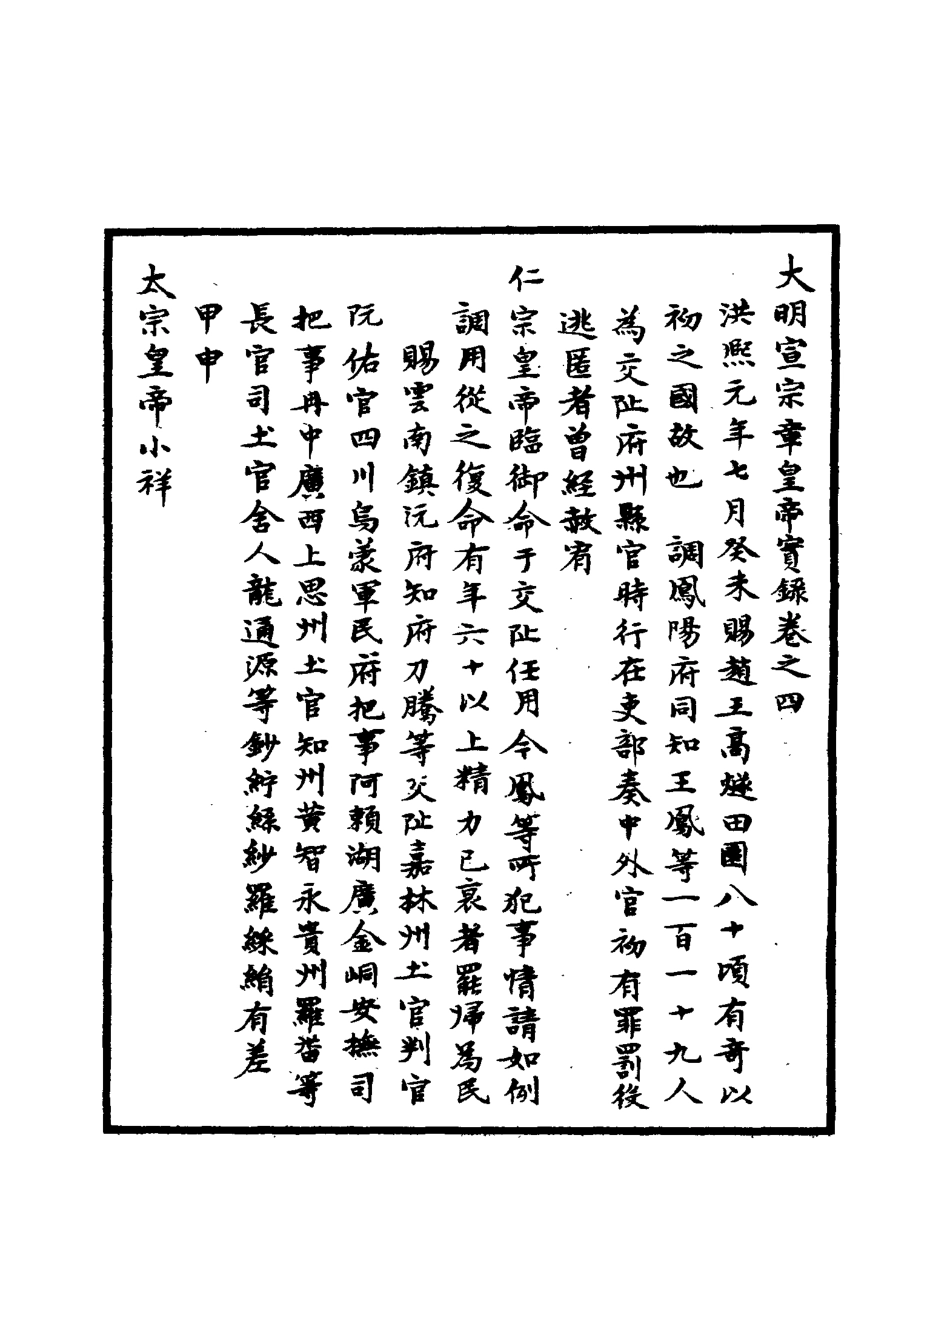 大明宣宗章皇帝實錄卷之四
洪熙元年七月癸未賜趙王高燧田園八十頃有奇以
初之國故也　調鳳陽府同知王鳳等一百一十九人
為交阯府州縣官時行在吏部奏中外官初有罪罰役
逃匿者曾經赦宥
仁宗皇帝臨御命于交阯任用今鳳等所犯事情請如例
調用從之復命有年六十以上精力已衰者罷歸為民
賜雲南鎮沅府知府刀騰等交阯嘉林州土官判官
阮佑官四川烏蒙軍民府把事阿賴湖廣金峒安撫司
把事冉中廣西上思州土官知州黃智永貴州羅畨等
長官司土官舍人龍通源等鈔紵絲紗羅綵絹有差
甲申
太宗皇帝小祥